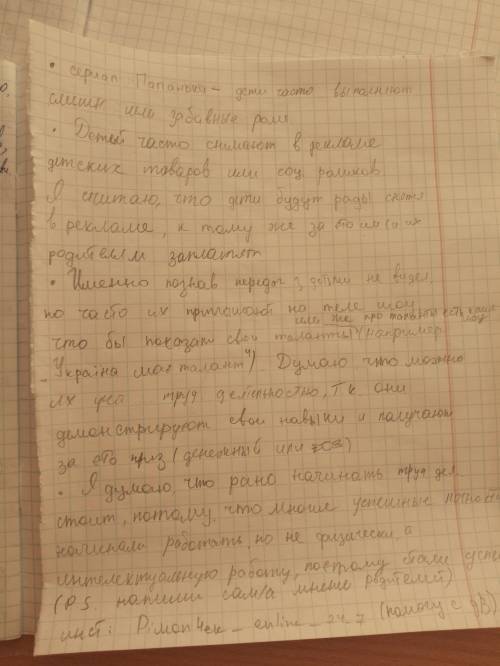 • сериал Папаньки – дети часто выполняют
смешн или забавные роли
• Детей часто снимают в рекламе
детских товаров или соц. роликов.
Я считаю, что дети будут рады снятся
в рекламе, к тому же за это им и их
родителям заплатят
• Именно познав передач з детьми не видел,
но часто их приглашают на теле шоу
или же про таланты есть
что бы показать свои таланты (например
"Україна має талант") Думаю что можно
их труд деятельностю, т.к они
демонстрируют свои навыки и получают
за это приз (денежный или
• Я думаю, что рано начинать труд деят.
стоит, потому, что многие успешные
начинали работать, но не физически, а
интелектуальную работу, поэтому стали
(P.S. напиши сам/а мнение родителей)
инст: